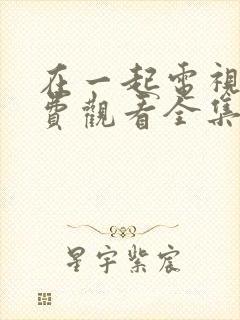 在一起電視
費觀看全集
星宇紫宸